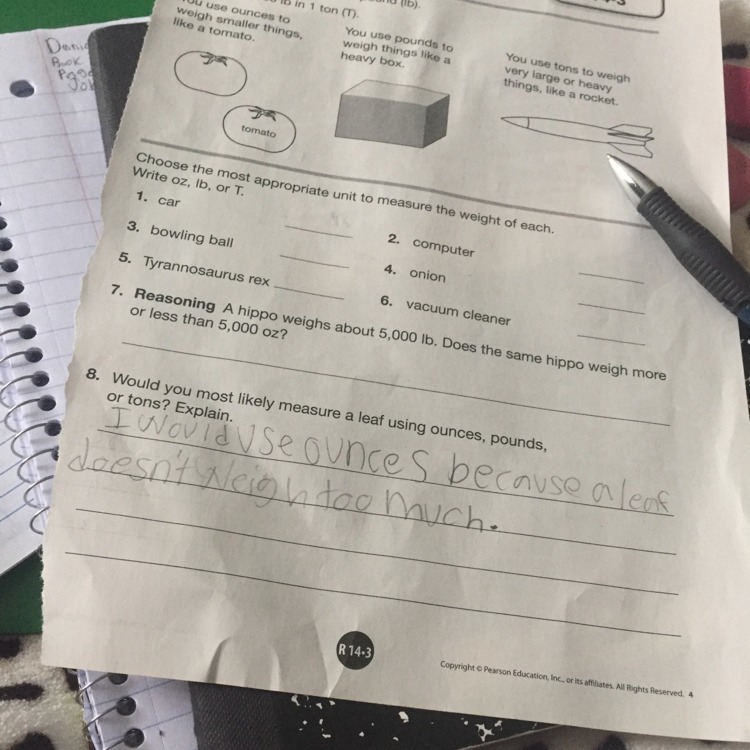 lb in 1 ton (T).
(lb).
You use ounces to
weigh smaller things,
like a tomato.
You use pounds to
weigh things like a
heavy box.
You use tons to weigh
very large or heavy
things, like a rocket.
tomato
Choose the most appropriate unit to measure the weight of each.
Write oz, lb, or T.
1. car
2. computer
3. bowling ball
4. onion
5. Tyrannosaurus rex
6. vacuum cleaner
7. Reasoning A hippo weighs about 5,000 lb. Does the same hippo weigh more
or less than 5,000 oz?
8. Would you most likely measure a leaf using ounces, pounds,
or tons? Explain.
I would use ounces because a leaf
doesn't weigh too much.
R 14•3
Copyright © Pearson Education, Inc., or its affiliates. All Rights Reserved. 4
Book